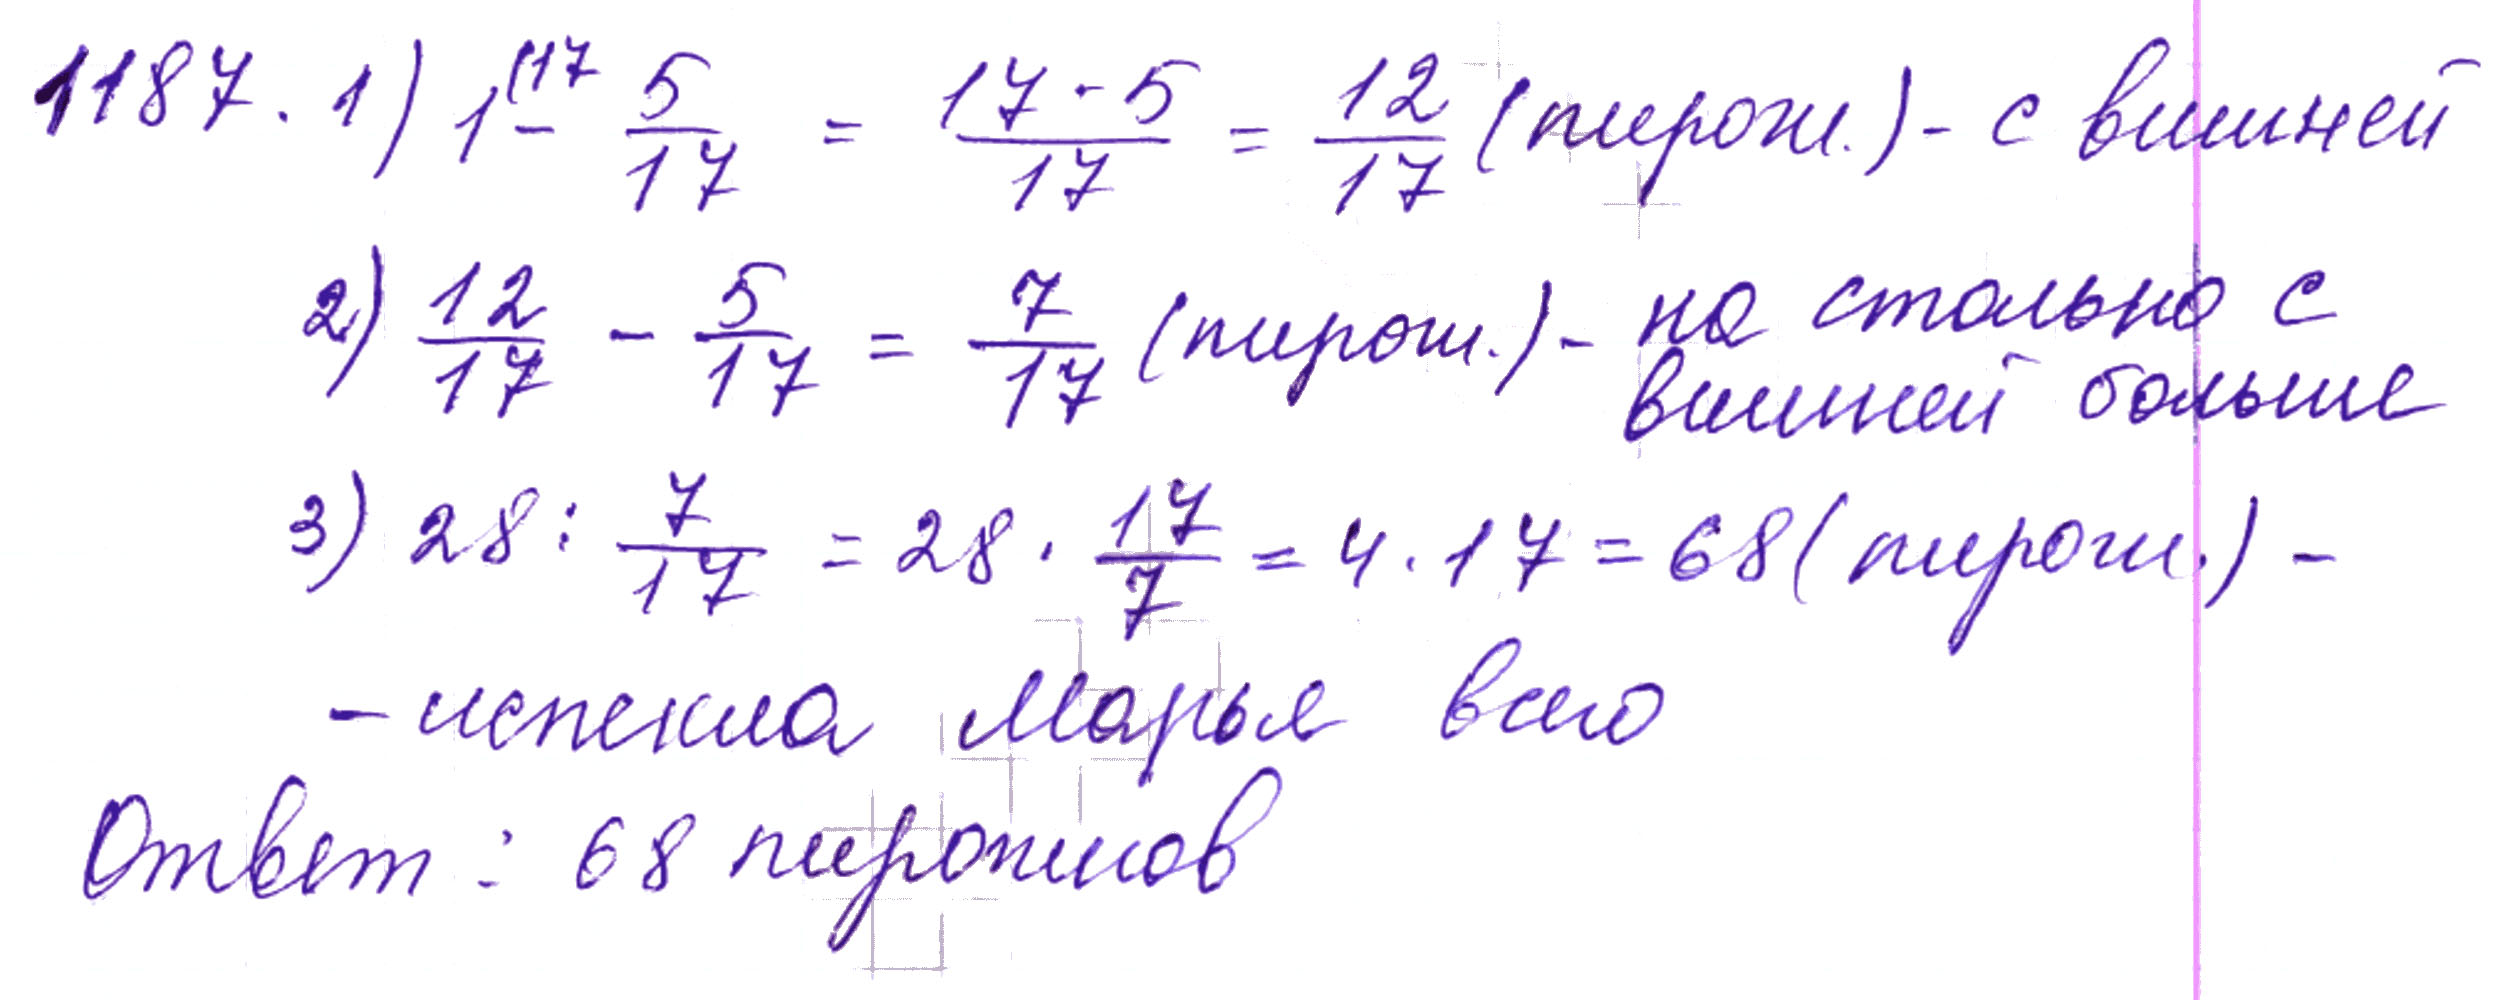 1187. 1) 1^(17 - 5/17 = (17 - 5)/17 = 12/17 (пирож.) - с вишней
2) 12/17 - 5/17 = 7/17 (пирож.) - на столько с
вишней больше
3) 28 : 7/17 = 28 · 17/7 = 4 · 17 = 68 (пирож.) -
- испекла Марья всего
Ответ: 68 пирожков